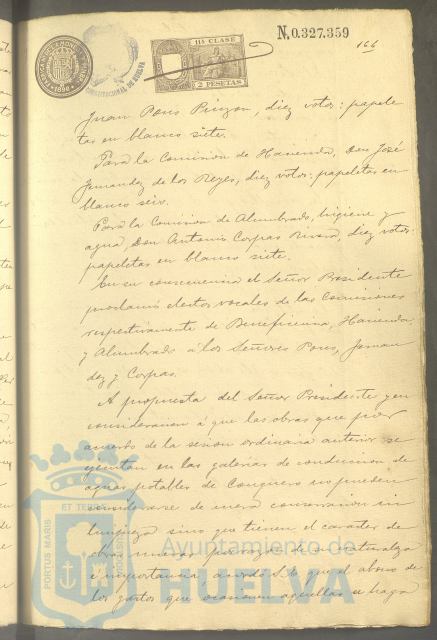 N, 0.327.359
166
11ª CLASE
2 PESETAS
1896
CONSTITUCIONAL DE HUELVA
Juan Pons Pinzon, diez votos: papele-
tas en blanco siete.
Para la Comision de Hacienda, Don José
Jernandez de los Reyes, diez votos: papeletas en
blanco seis.
Para la Comision de Alumbrado, higiene y
agua, Don Antonio Corpas Rivera, diez votos:
papeletas en blanco siete.
En su consecuencia el Señor Presidente
proclamó electos vocales de las Comisiones
respectivamente de Beneficencia, Hacienda
y Alumbrado á los Señores Pons, Jernan
dez y Corpas.
A propuesta del Señor Presidente y en
consideracion á que las obras que por
acuerdo de la sesion ordinaria anterior se
ejecutan en las galerias de conduccion de
aguas potables de Conquero no pueden
considerarse de mera conservacion ni
limpieza sino que tienen el caracter de
obra nueva por razon de su naturaleza
é importancia acordó S. E. que el abono de
los gastos que ocasionen aquellas se haga
PORTUS MARIS
ET TERRAE
CUSTODIA
Ayuntamiento de
HUELVA